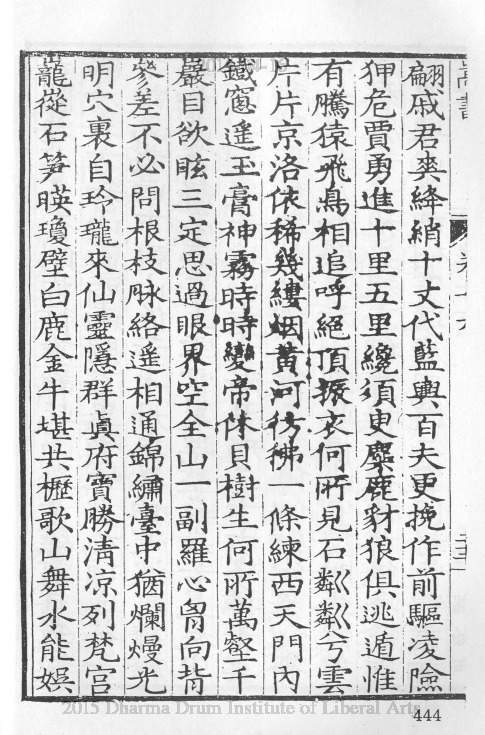 翩戚君奭絳綃十丈代藍輿百夫更挽作前驅凌險
狎危賈勇進十里五里繞須臾麋鹿豺狼俱逃遁惟
有騰猿飛鳥相追呼絕頂振衣何所見石粼粼兮雲
片片京洛依稀幾縷烟黃河彷彿一條練西天門內
鐵窓遥玉膏神霧時時變帝休貝樹生何所萬壑千
巖目欲眩三定思過眼界空全山一副羅心胷向背
參差不必問根枝脉絡遥相通錦繡臺中猶爛熳光
明穴裏自玲瓏來仙靈隱群眞府寶勝清凉列梵宮
巃嵸石笋暎瓊壁白鹿金牛堪共櫪歌山舞水能娛
2015 Dharma Drum Institute of Liberal Arts
444